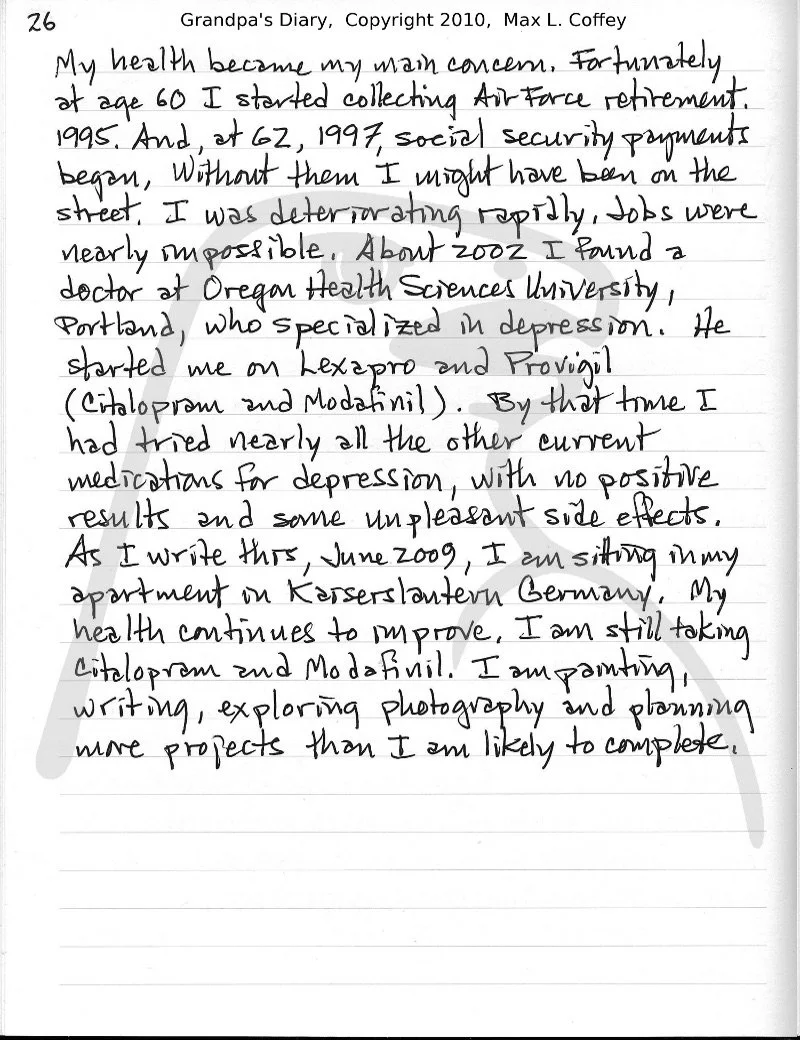 26
Grandpa's Diary, Copyright 2010, Max L. Coffey
My health became my main concern. Fortunately
at age 60 I started collecting Air Force retirement.
1995. And, at 62, 1997, social security payments
began, Without them I might have been on the
street. I was deteriorating rapidly. Jobs were
nearly impossible. About 2002 I found a
doctor at Oregon Health Sciences University,
Portland, who specialized in depression. He
started me on Lexapro and Provigil
(Citalopram and Modafinil). By that time I
had tried nearly all the other current
medications for depression, with no positive
results and some unpleasant side effects.
As I write this, June 2009, I am sitting in my
apartment in Kaiserslautern Germany. My
health continues to improve. I am still taking
Citalopram and Modafinil. I am painting,
writing, exploring photography and planning
more projects than I am likely to complete.